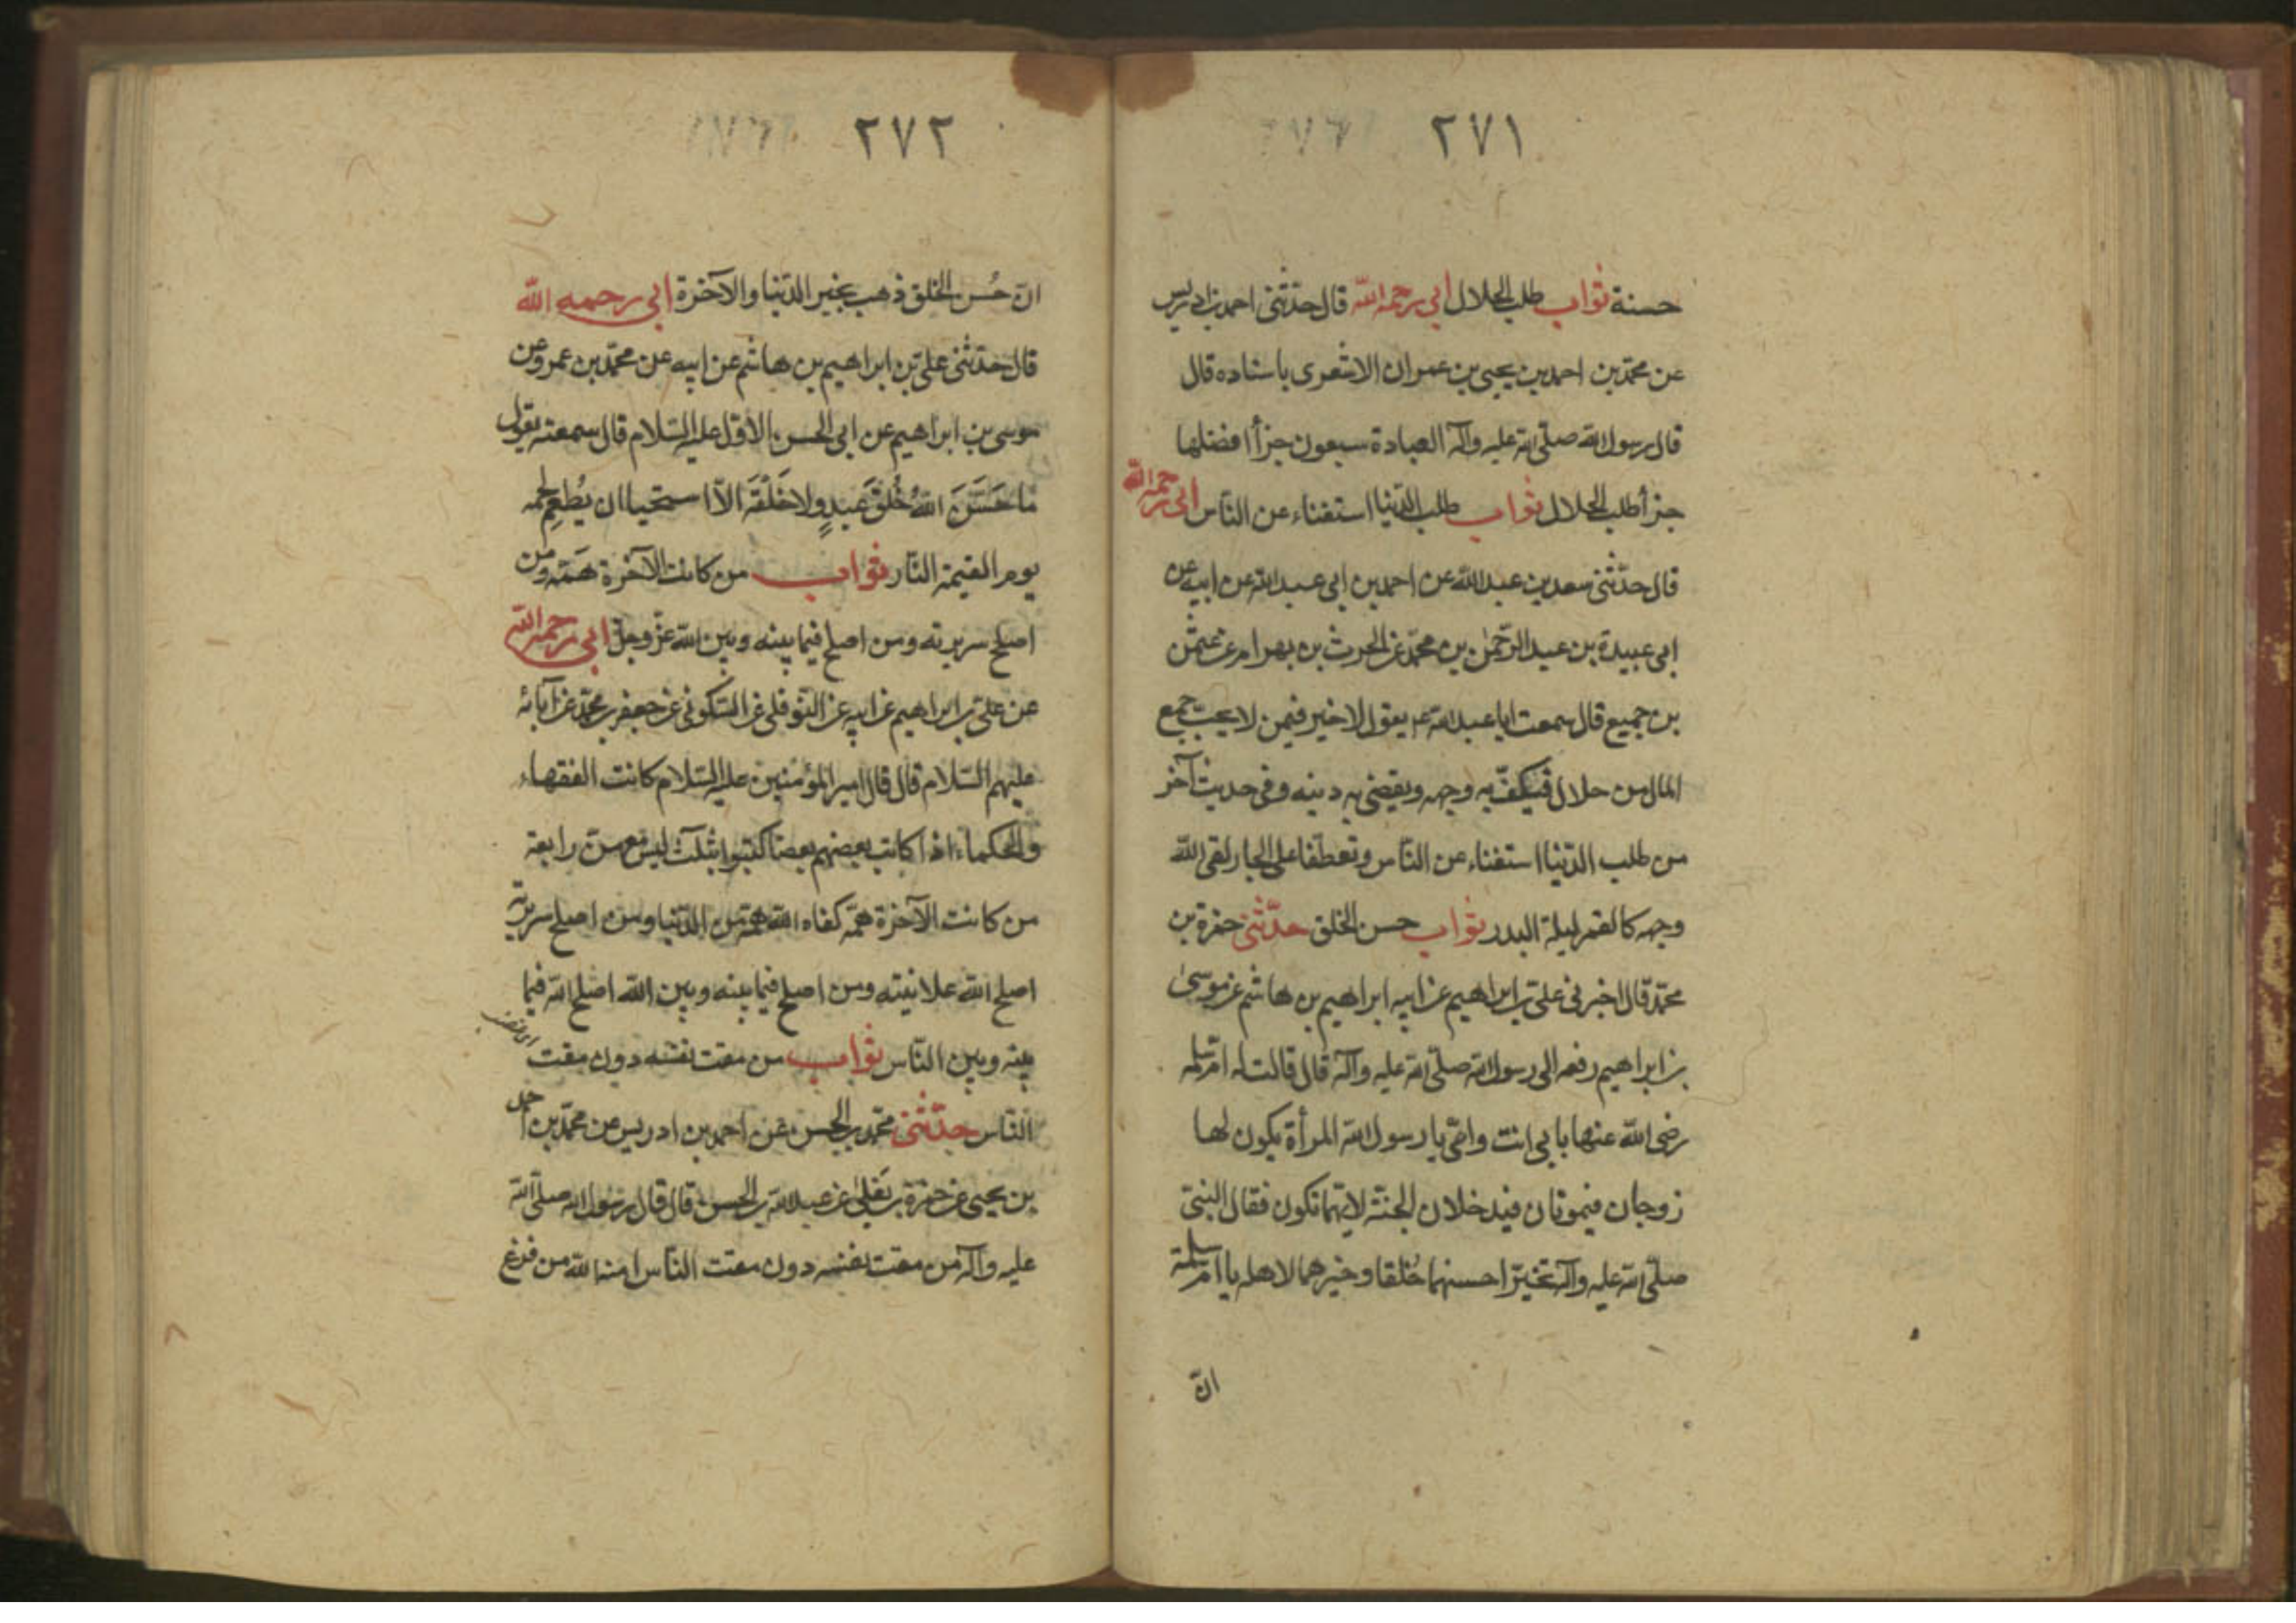 ٢٧١
حسنة ثواب طلب الحلال ابي رحمه الله قال حدثنى احمد بن ادريس
عن محمد بن احمد بن يحيى بن عمران الاشعرى باسناده قال
قال رسول الله صلى الله عليه وآله العبادة سبعون جزأ افضلها
جزأ طلب الحلال ثواب طلب الدنيا استغناء عن الناس ابى رحمه الله
قال حدثنى سعد بن عبد الله عن احمد بن ابى عبد الله عن ابيه عن
ابى عبيدة بن عبد الرحمن بن محمد عن الحرث بن بهرام عن عثمن
بن جميع قال سمعت ابا عبد الله ع يقول لاخير فيمن لا يحب جمع
المال من حلال فيكف به وجهه ويقضى به دينه وفى حديث آخر
من طلب الدنيا استغناء عن الناس وتعطفا على الجار لقى الله
وجهه كالقمر ليلة البدر ثواب حسن الخلق حدثنى حمزة بن
محمد قال اخبرنى على بن ابراهيم عن ابيه ابراهيم بن هاشم عن موسى
بن ابراهيم رفعه الى رسول الله صلى الله عليه وآله قال قالت له ام سلمه
رضى الله عنها بابى انت وامى يا رسول الله المرأة يكون لها
زوجان فيموتان فيدخلان الجنة لايهما تكون فقال النبى
صلى الله عليه وآله تخير احسنهما خُلقا وخيرهما لاهله يا ام سلمة
ان
٢٧٢
ان حُسن الخلق ذهب بخير الدنيا والآخرة ابى رحمه الله
قال حدثنى على بن ابراهيم بن هاشم عن ابيه عن محمد بن عمرو عن
موسى بن ابراهيم عن ابى الحسن الاول عليه السلام قال سمعته يقول
ما حَسَّنَ اللهُ خُلقَ عَبدٍ ولا خَلْقَه الا استحيا ان يُطعِم لحمه
يوم القيمة النار ثواب من كانت الآخرة همّه ومن
اصلح سريرته ومن اصلح فيما بينه وبين الله عز وجل ابى رحمه الله
عن على بن ابراهيم عن ابيه عن النوفلى عن السكونى عن جعفر بن محمد عن آبائه
عليهم السلام قال قال امير المؤمنين عليه السلام كانت الفقهاء
والحكماء اذا كاتب بعضهم بعضا كتبوا بثلث ليس معهن رابعة
من كانت الآخرة همه كفاه الله همه من الدنيا ومن اصلح سريرته
اصلح الله علانيته ومن اصلح فيما بينه وبين الله اصلح الله فيما
بينه وبين الناس ثواب من مقت نفسه دون مقت
الناس حدثنى محمد بن الحسن عن احمد بن ادريس عن محمد بن احمد
بن يحيى عن حمزة بن يعلى عن عبيد الله بن الحسن قال قال رسول الله صلى الله
عليه وآله من مقت نفسه دون مقت الناس امنه الله من فزع